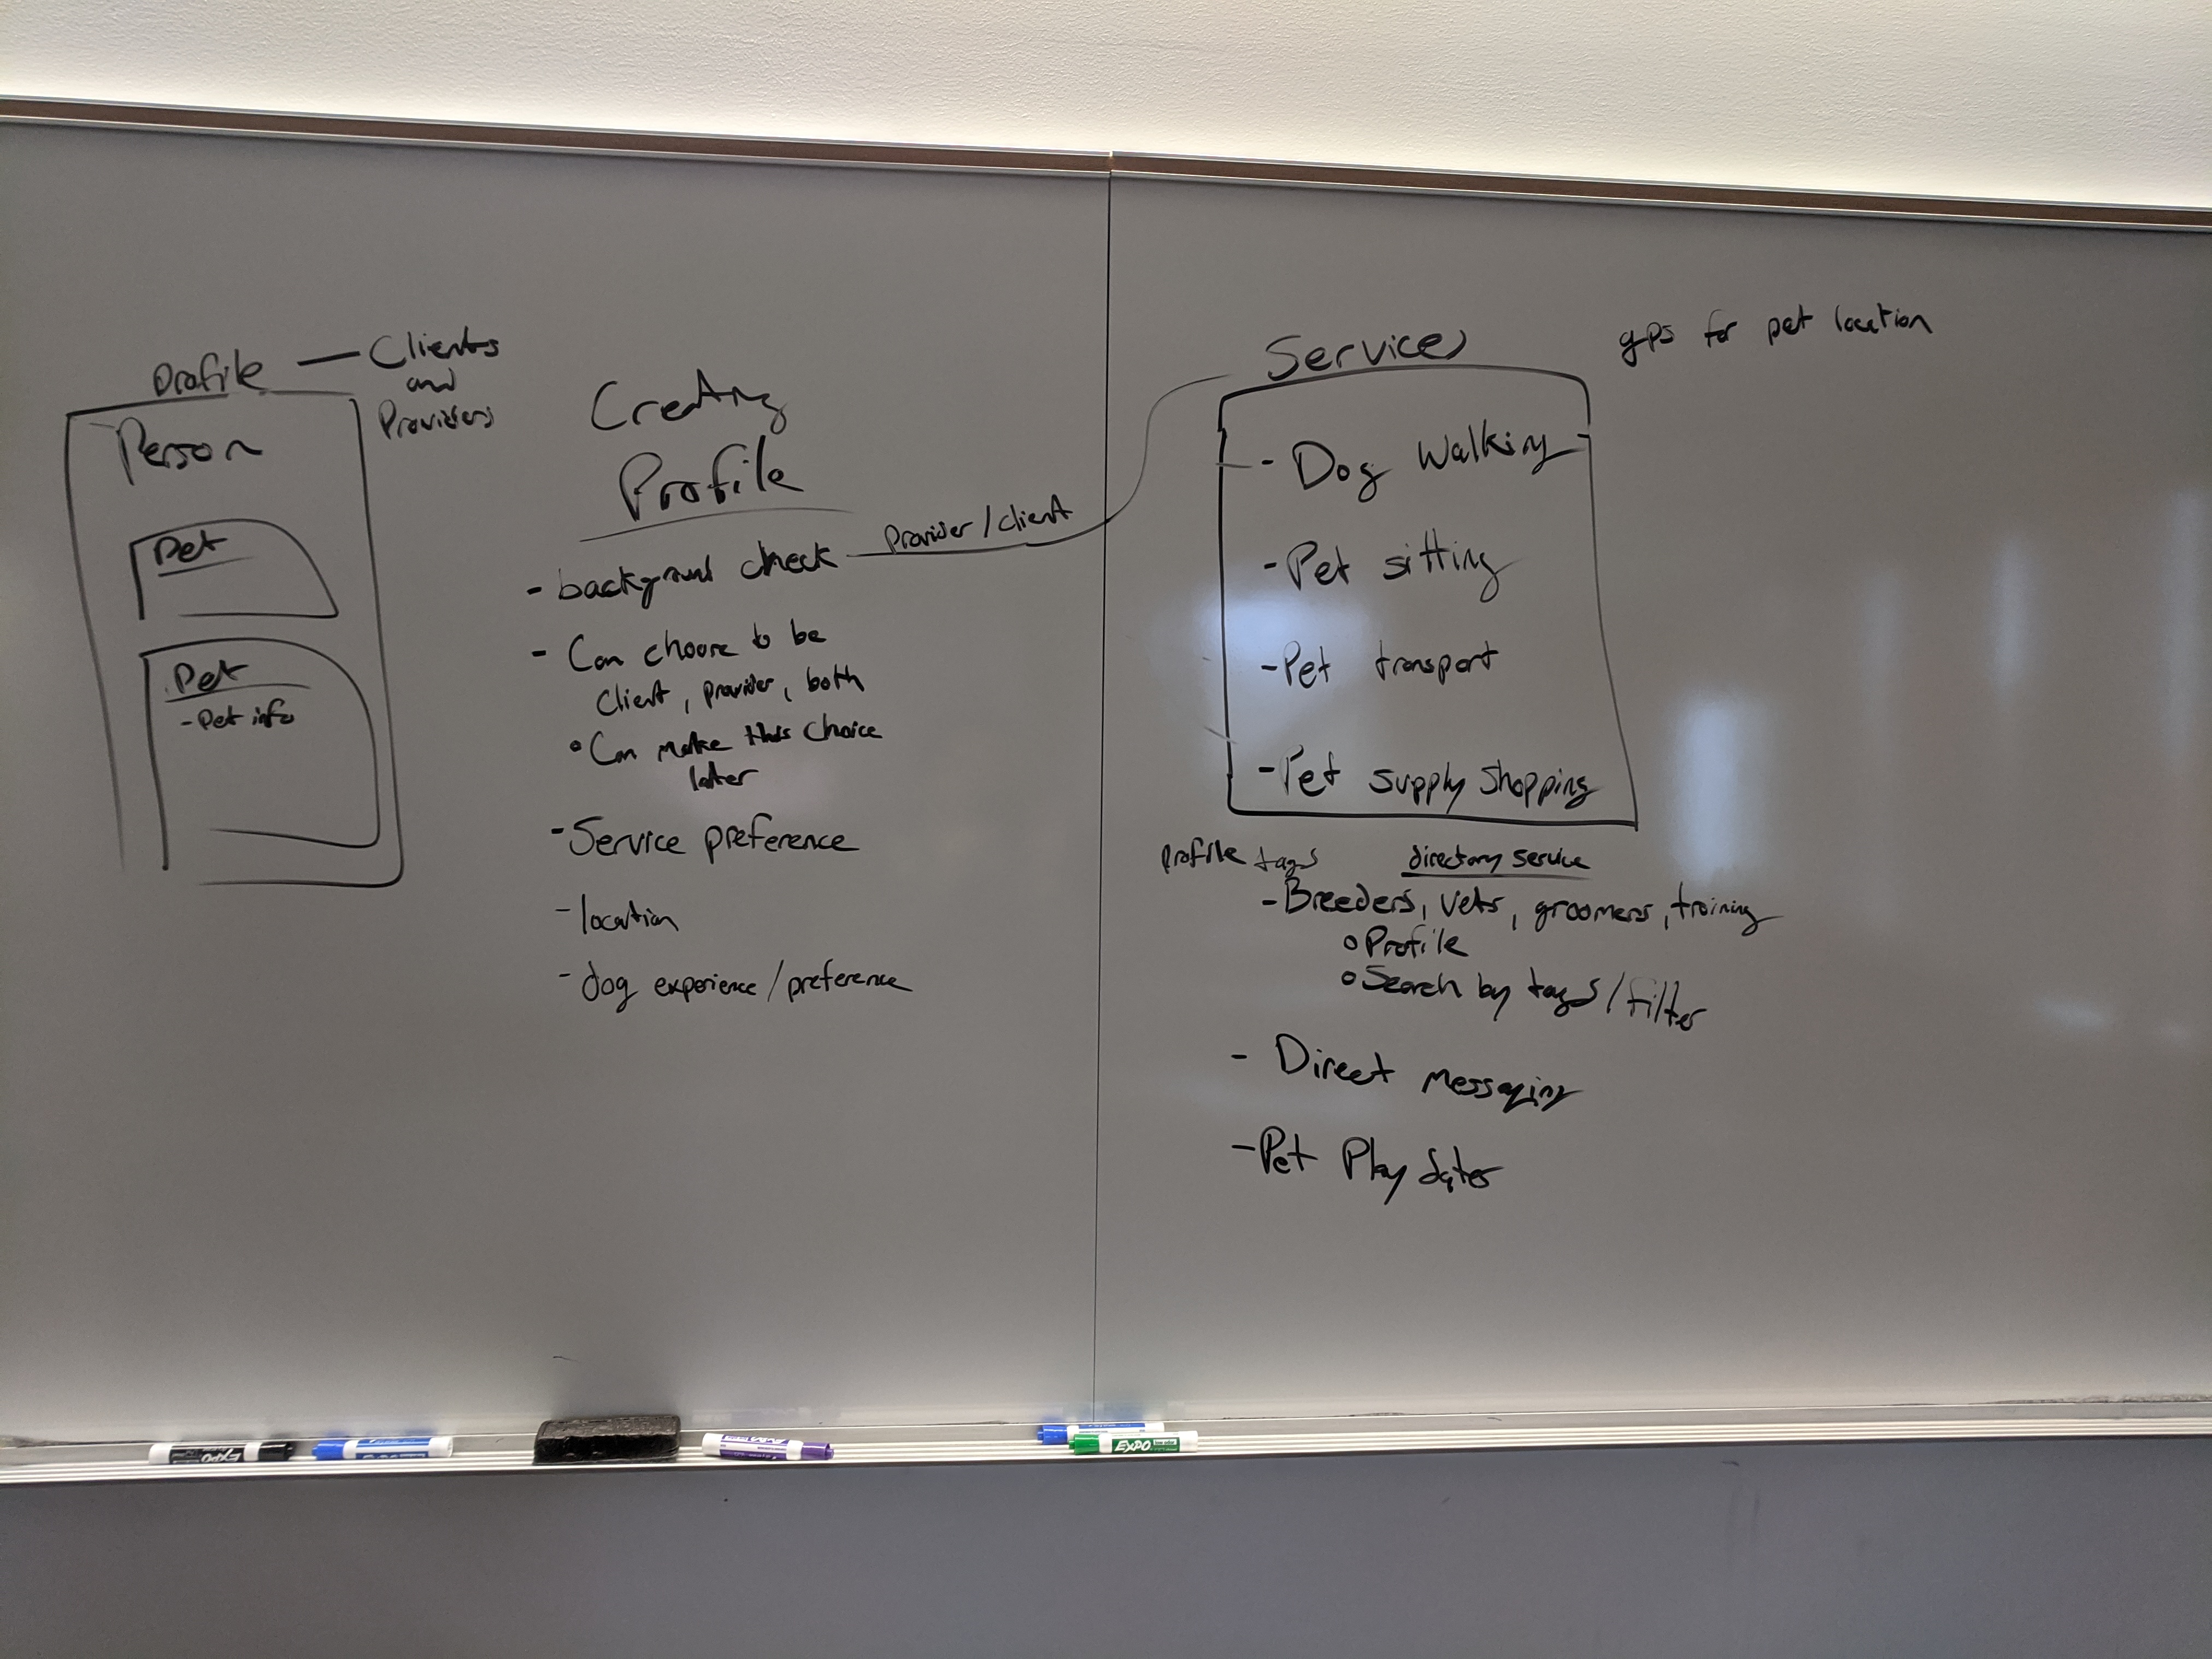 Profile — Clients
and
Providers
Person
Pet
Pet
- Pet info
Creating
Profile
- background check
Provider/client
- Can choose to be
Client, provider, both
◦ Can make this choice
later
- Service preference
- location
- dog experience/preference
Services
gps for pet location
- Dog Walking
- Pet sitting
- Pet transport
- Pet supply shopping
Profile tags
directory service
- Breeders, Vets, groomers, training
◦ Profile
◦ Search by tags/filter
- Direct Messaging
- Pet Play dates
EXPO
EXPO